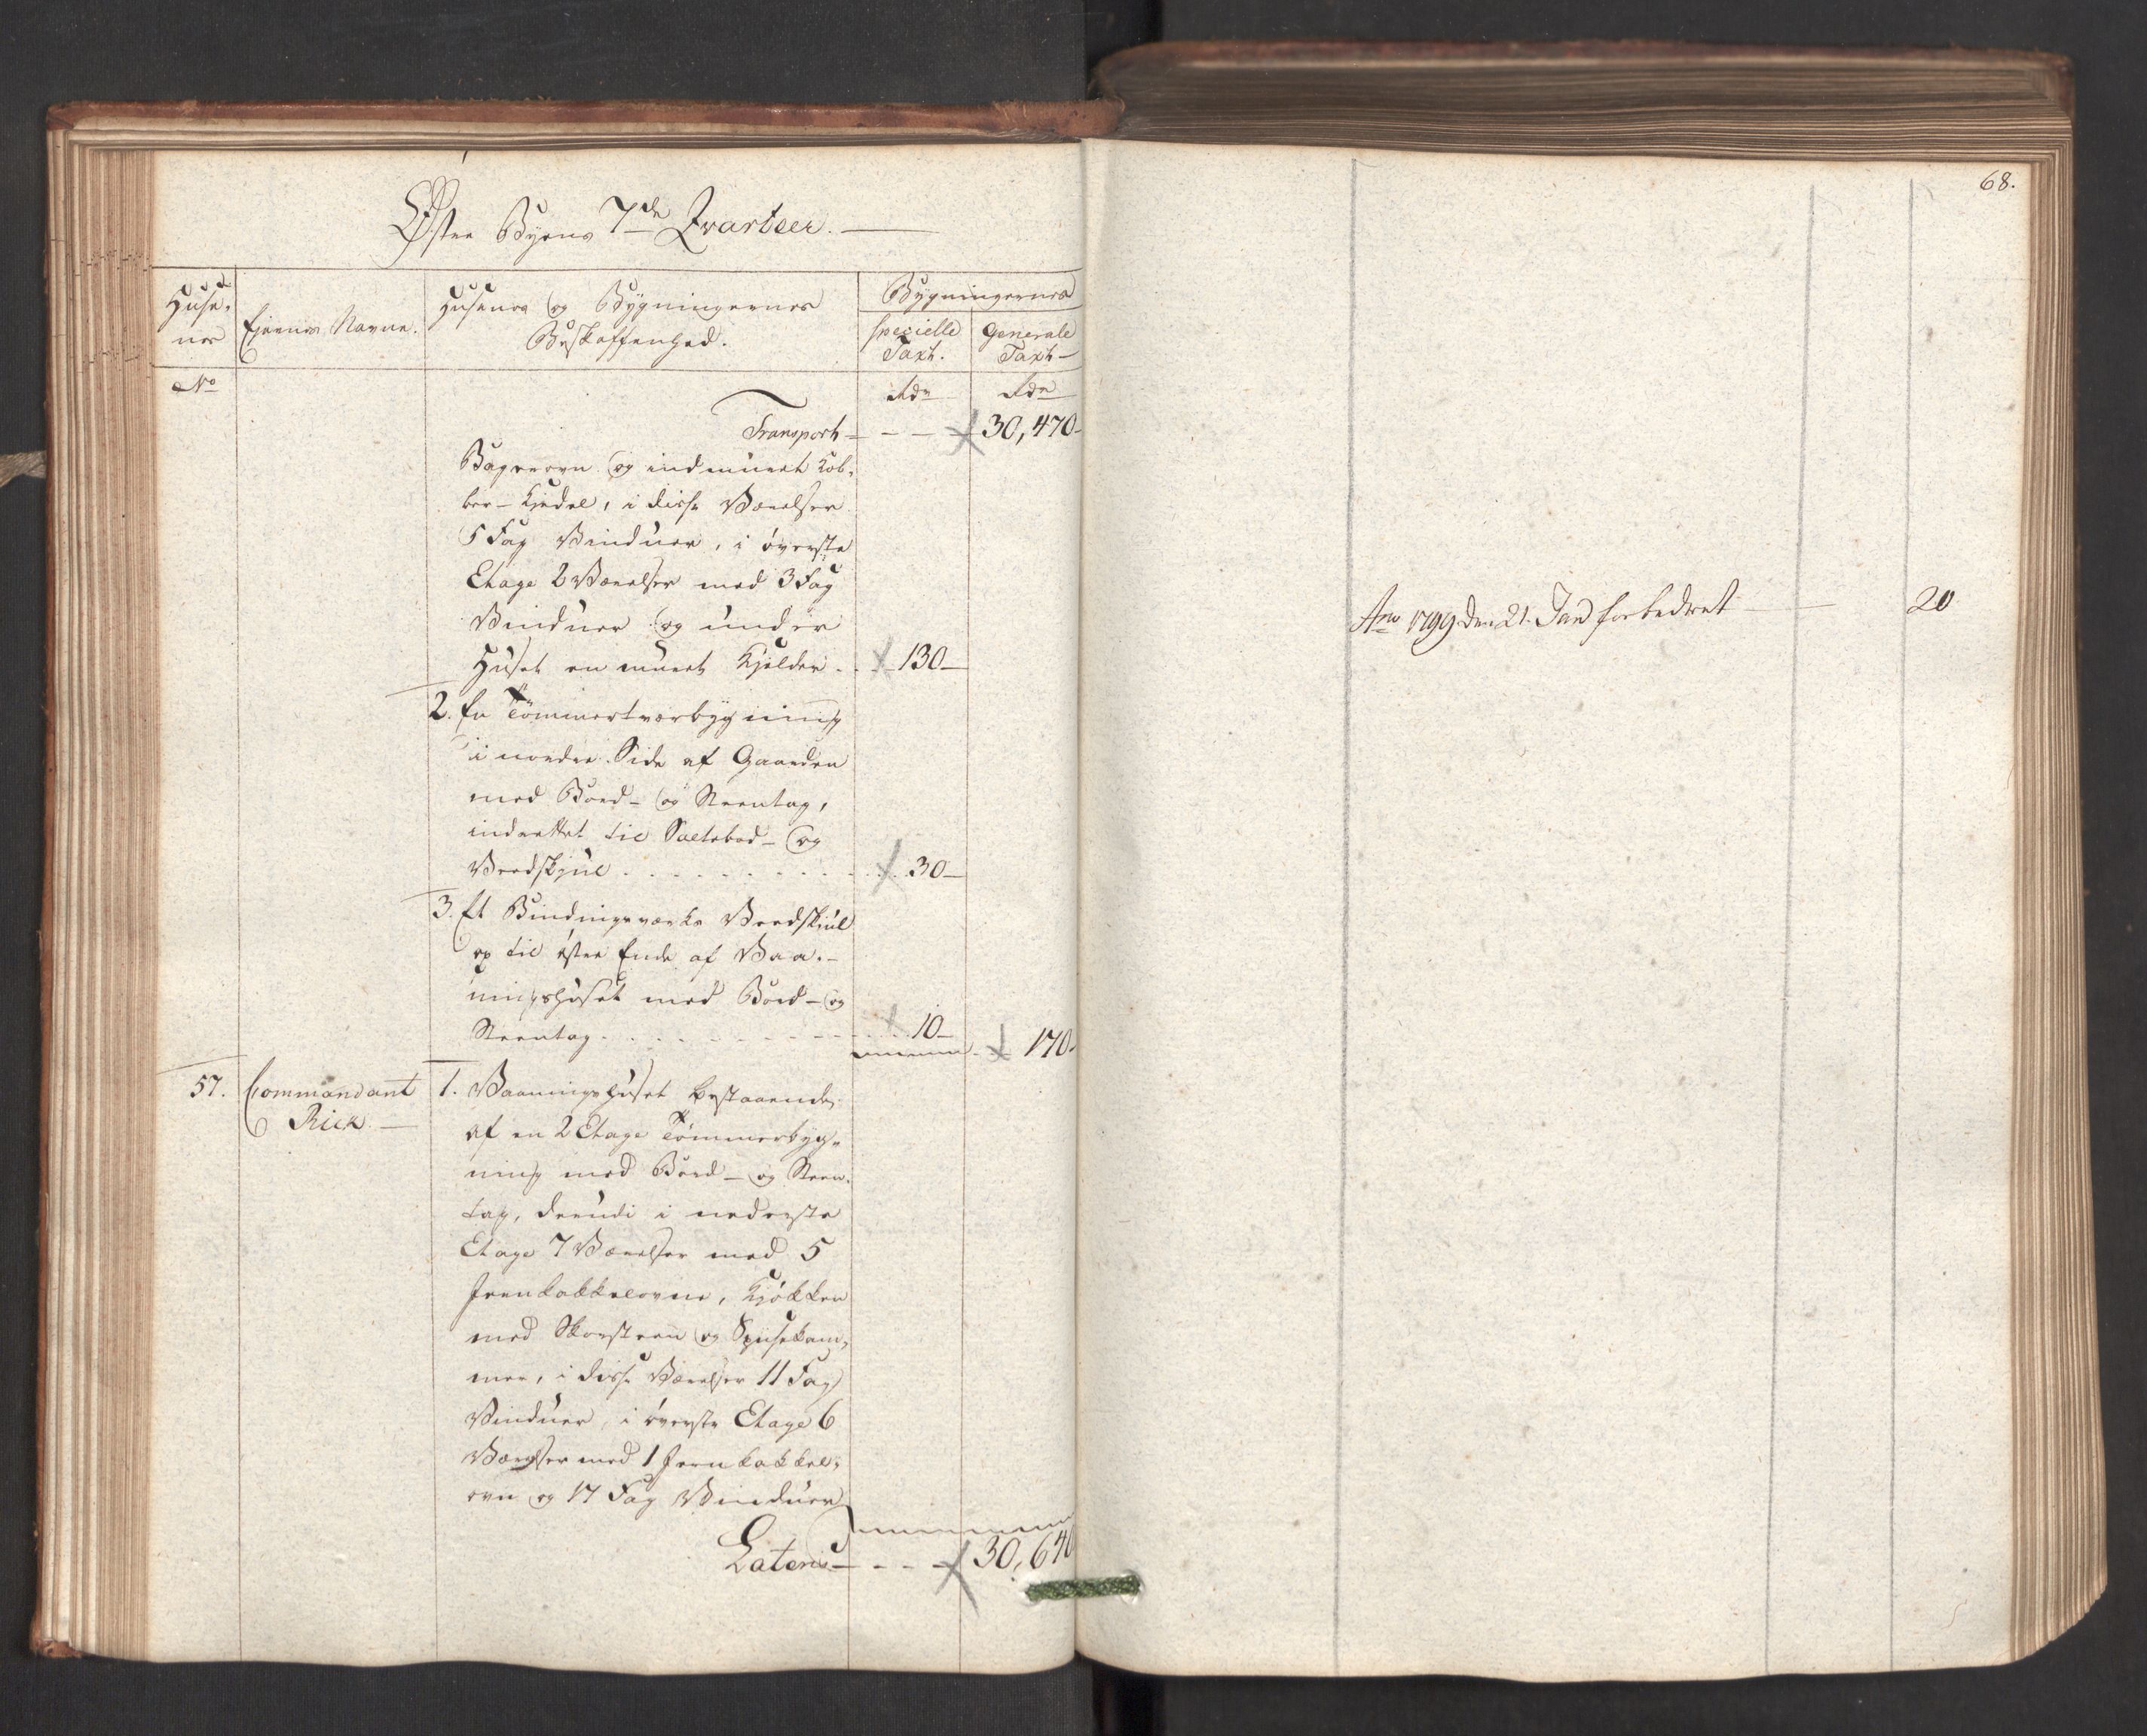 68.
Østre Byens 7de Qvarteer.
Huse-
nes
Ejernes Navne.
Husenes og Bygningernes
Beskaffenhed.
Bygningernes
specielle
Taxt.
Generale
Taxt
No
Rdr
Rdr
Transport - - - 30,470-
Bagerovn og indmuret Kob-
ber-Kjedel, i disse Værelser
5 Fag Vinduer, i øverste
Etage 2 Værelser med 3 Fag
Vinduer og under
Huset en muret Kjelder - 130-
2. En Tømmertverbygning
i nordre Side af Gaarden
med Bord- og Steentag,
indrettet til Saltebod- og
Veedskjul . . . . 30-
3. Et Bindingsverks Veedskiul
op til østre Ende af Vaa-
ningshuset med Bord- og
Steentag . . . . 10-
170-
57.
Commandant
Rick.
1. Vaaningshuset bestaaende
af en 2 Etage Tømmerbyg-
ning med Bord- og Steen-
tag, derudi i nederste
Etage 7 Værelser med 5
Jernkakkelovne, Kjøkken
med Skorsteen og Spiisekam-
mer, i disse Værelser 11 Fag
Vinduer, i øverste Etage 6
Værelser med 1 Jernkakkel-
ovn og 17 Fag Vinduer
Lateris - - - 30,640
Ano 1799 den 21. Jan forbedret 20